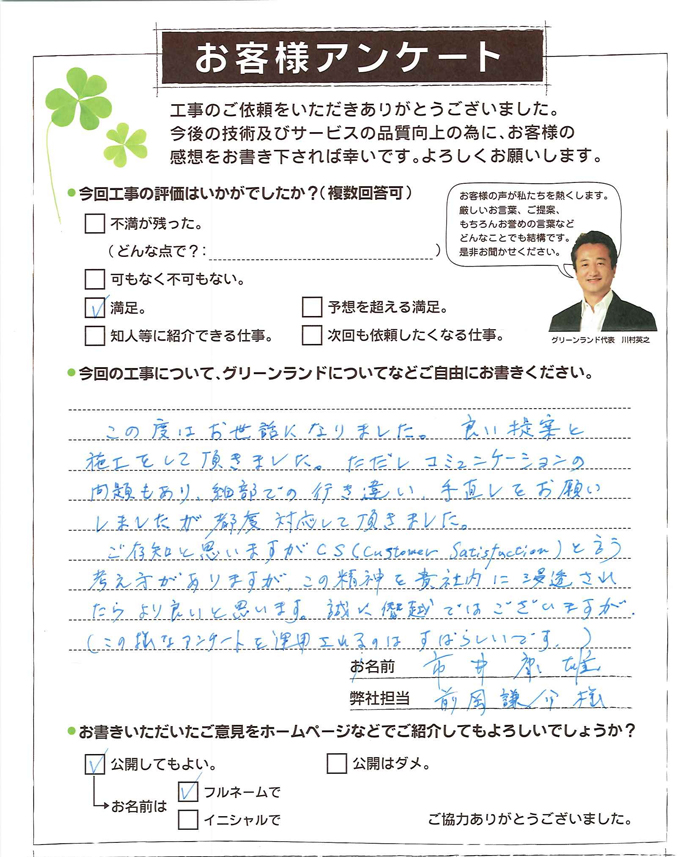 お客様アンケート
工事のご依頼をいただきありがとうございました。
今後の技術及びサービスの品質向上の為に、お客様の
感想をお書き下されば幸いです。よろしくお願いします。
●今回工事の評価はいかがでしたか?(複数回答可)
お客様の声が私たちを熱くします。
厳しいお言葉、ご提案、
もちろんお誉めの言葉など
どんなことでも結構です。
是非お聞かせください。
□ 不満が残った。
(どんな点で?: )
□ 可もなく不可もない。
☑ 満足。 □ 予想を超える満足。
□ 知人等に紹介できる仕事。 □ 次回も依頼したくなる仕事。
グリーンランド代表 川村英之
●今回の工事について、グリーンランドについてなどご自由にお書きください。
この度はお世話になりました。 良い提案と
施工をして頂きました。ただしコミュニケーションの
問題もあり、細部での行き違い、手直しをお願い
しましたが都度対応して頂きました。
ご存知と思いますがCS(Customer Satisfaction)と言う
考え方がありますが、この精神を貴社内に浸透され
たらより良いと思います。誠に僭越ではございますが、
(この様なアンケートを運用されるのはすばらしいです。)
お名前 市井 雄
弊社担当 前岡謙介様
●お書きいただいたご意見をホームページなどでご紹介してもよろしいでしょうか?
☑ 公開してもよい。 □ 公開はダメ。
お名前は ☑ フルネームで
□ イニシャルで
ご協力ありがとうございました。